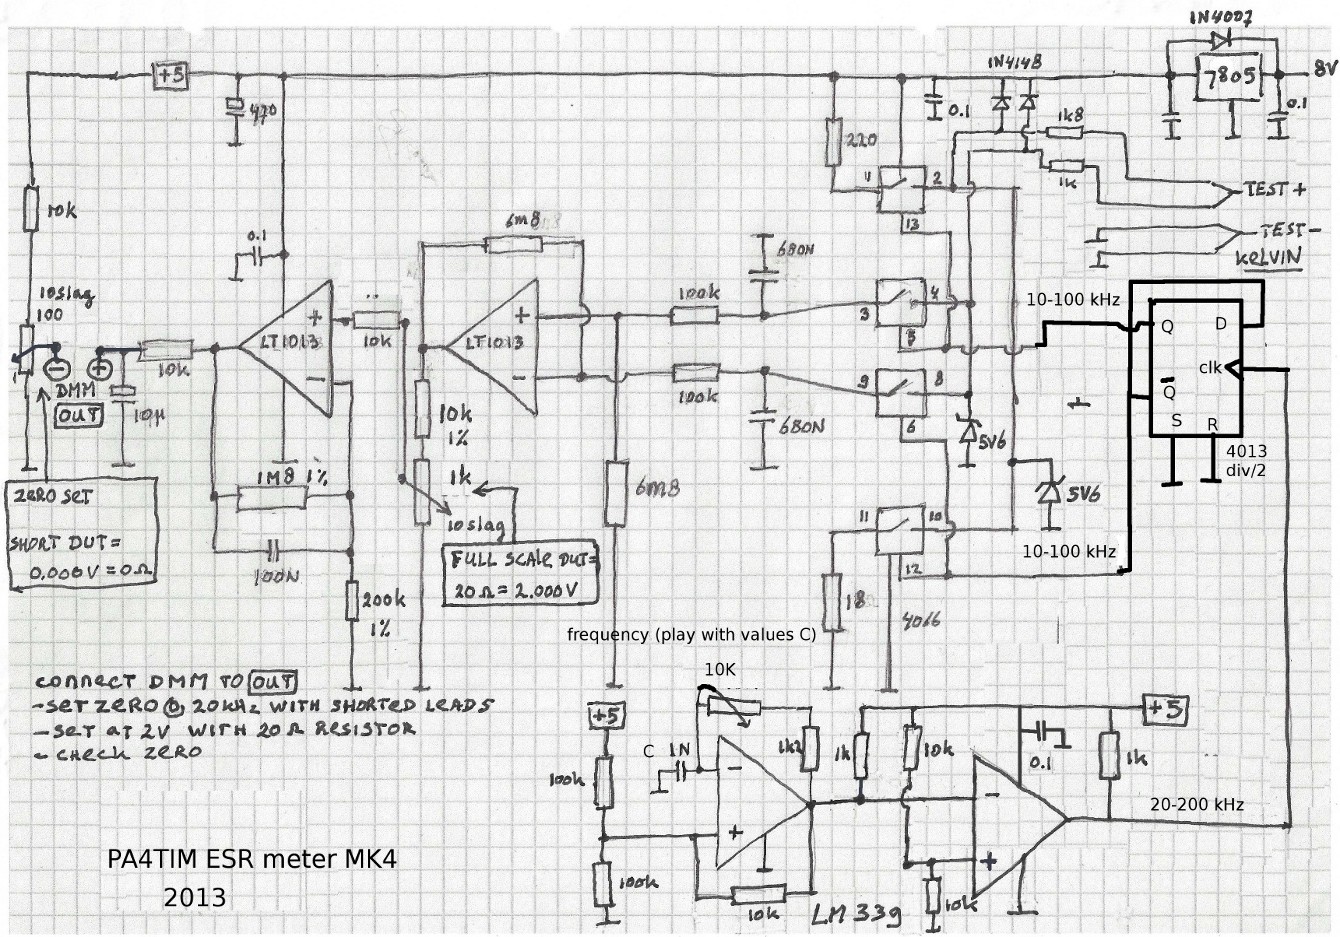 1N4007
+5
7805
8V
0.1
1N4148
0.1
1k8
1k
TEST +
TEST -
KELVIN
470
220
1
2
13
10k
0.1
6m8
680N
100k
3
4
5
10-100 kHz
Q
D
clk
Q
S
R
4013
div/2
10slag
100
DMM
OUT
10k
10µ
LT1013
+
-
10k
LT1013
+
-
100k
680N
9
8
6
5V6
5V6
10k
1%
1k
10slag
6m8
1M8 1%
100N
200k
1%
ZERO SET
SHORT DUT=
0.000V = 0Ω
FULL SCALE DUT=
20Ω = 2.000V
11
10
12
18
4066
10-100 kHz
frequency (play with values C)
CONNECT DMM TO OUT
-SET ZERO @ 20kHz WITH SHORTED LEADS
- SET AT 2V WITH 20Ω RESISTOR
- CHECK ZERO
+5
100k
100k
10K
C 1N
-
+
1k2
10k
1k
10k
10k
LM339
-
+
0.1
1k
+5
20-200 kHz
PA4TIM ESR meter MK4
2013